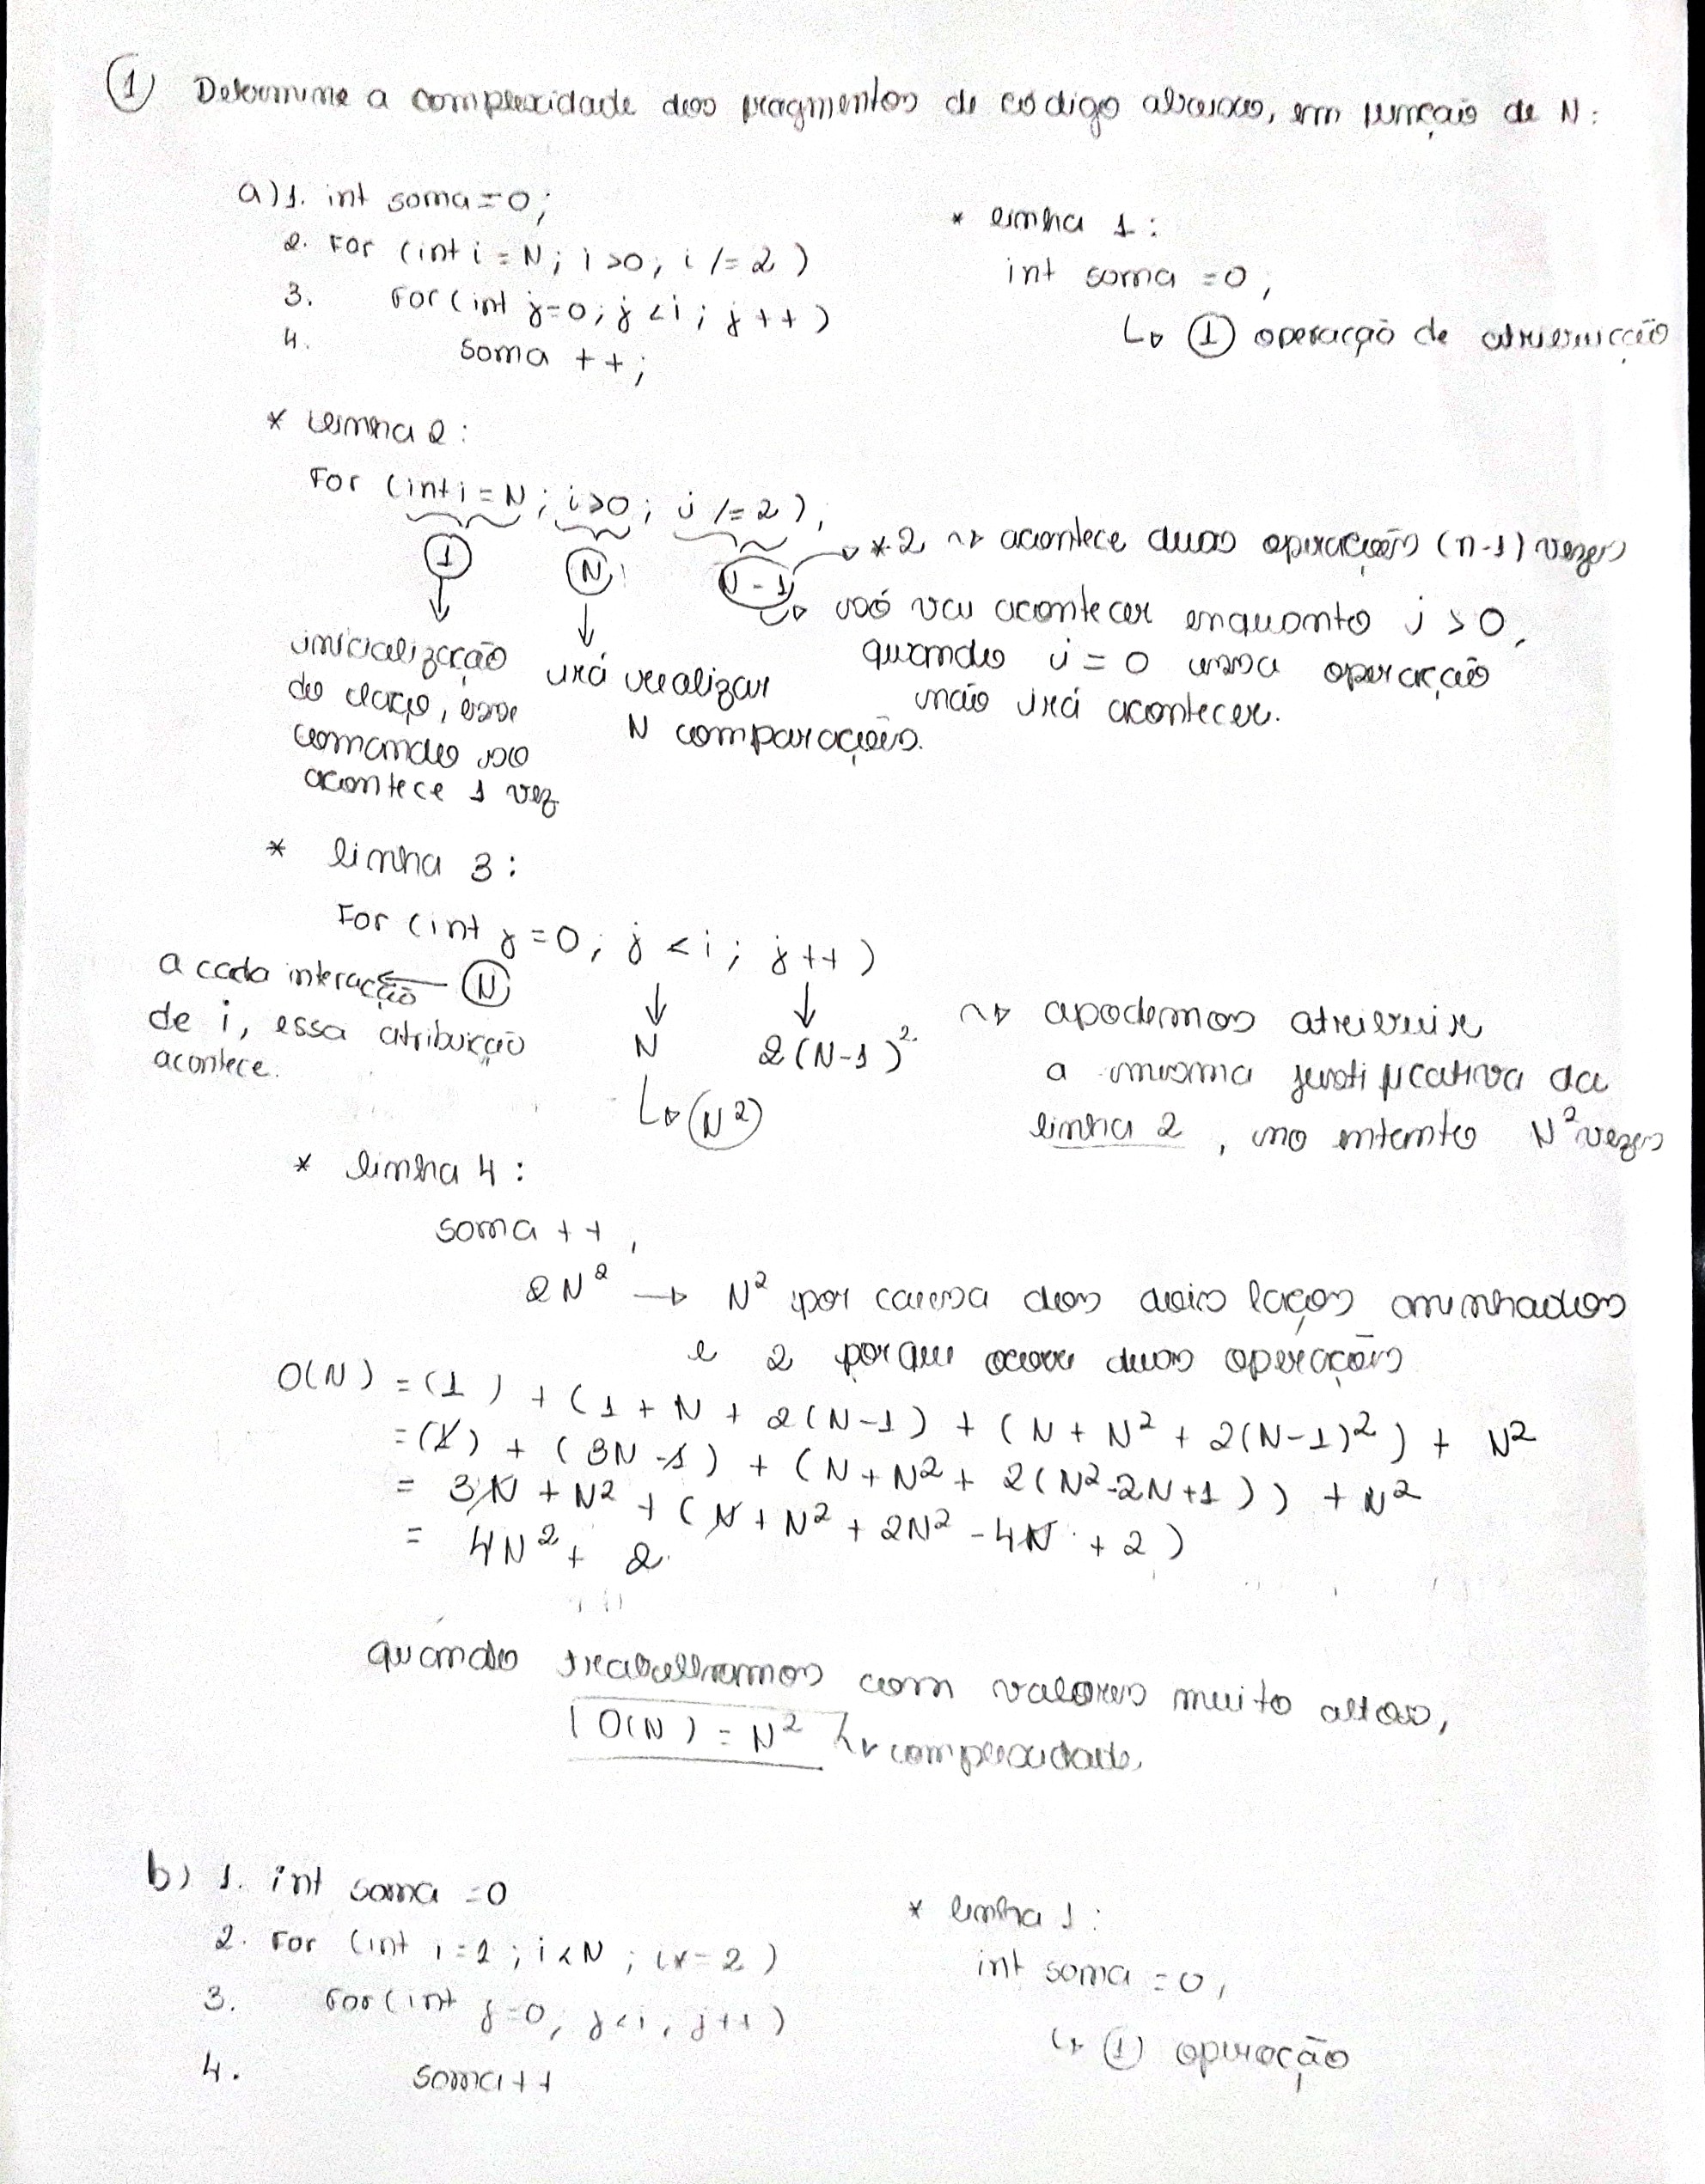 ① Determine a complexidade dos fragmentos de código abaixo, em função de N:
a) 1. int soma = 0;
2. For (int i = N; i > 0; i /= 2)
3. For (int j=0; j < i; j++)
4. soma ++;
* linha 1:
int soma = 0;
↳ ① operação de atribuição
* linha 2:
For (int i = N; i>0; i /= 2);
① N N-1 → *2 ⇝ acontece duas operações (n-1) vezes
↳ só vai acontecer enquanto i > 0,
quando i = 0 essa operação
não irá acontecer.
inicialização
do laço, esse
comando só
acontece 1 vez
irá realizar
N comparações.
* linha 3:
For (int j=0; j < i; j++)
a cada interação ← N
de i, essa atribuição
acontece.
N
↳ N²
2(N-1)²
⇝ podemos atribuir
a mesma justificativa da
linha 2, no entanto N² vezes
* linha 4:
soma ++,
2N² → N² por causa dos dois laços aninhados
e 2 porque ocorre duas operações
O(N) = (1) + (1 + N + 2(N-1) + (N + N² + 2(N-1)²) + N²
= (1) + (3N -1) + (N + N² + 2(N²-2N+1)) + N²
= 3N + N² + (N + N² + 2N² - 4N + 2)
= 4N² + 2
quando trabalhamos com valores muito altos,
O(N) = N² ↳ complexidade.
b) 1. int soma = 0
2. For (int i = 1; i < N; i *= 2)
3. For (int j=0; j<i; j++)
4. soma++
* linha 1:
int soma = 0,
↳ ① operação